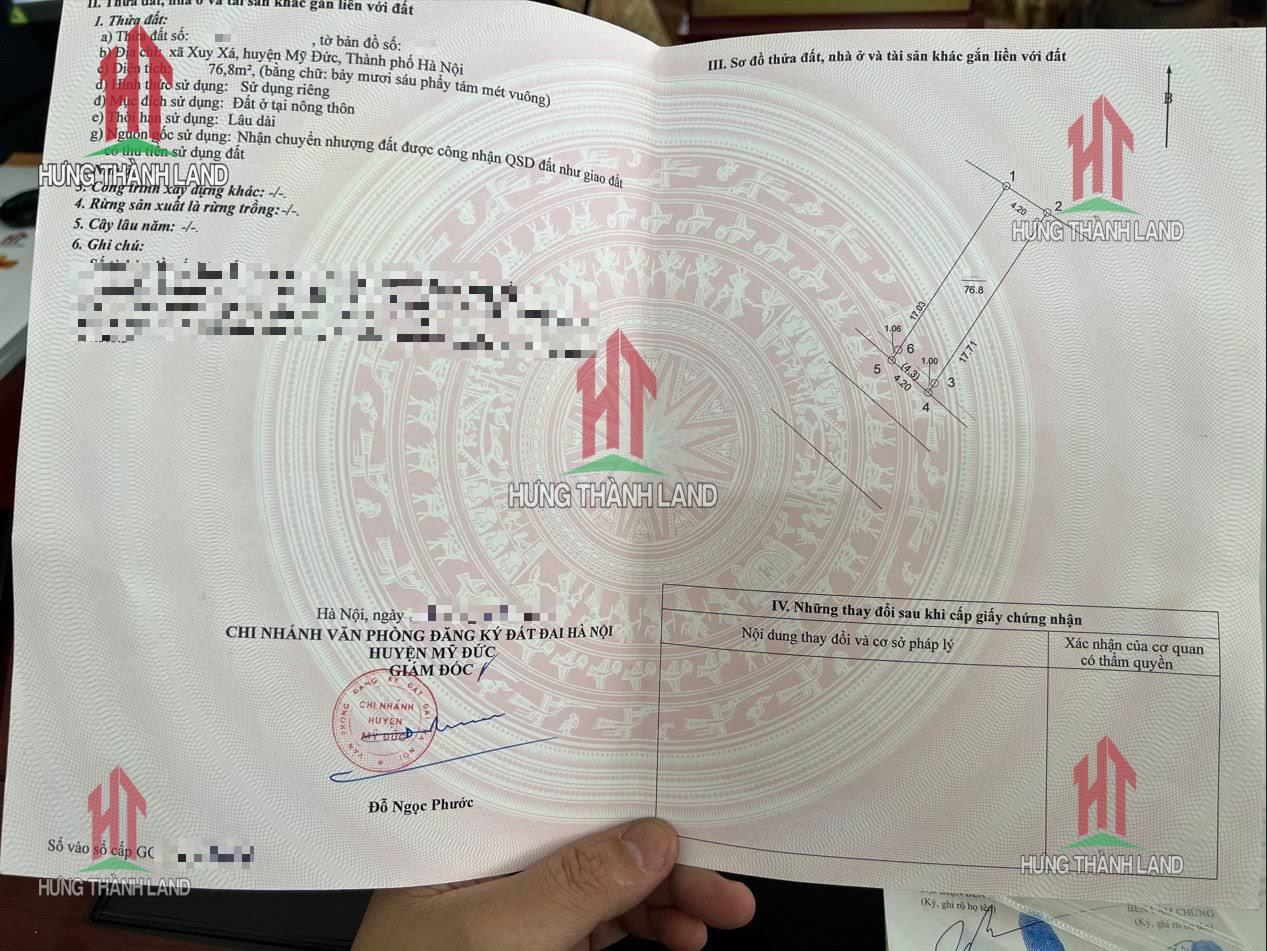 II. Thửa đất, nhà ở và tài sản khác gắn liền với đất
1. Thửa đất:
a) Thửa đất số: , tờ bản đồ số:
b) Địa chỉ: xã Xuy Xá, huyện Mỹ Đức, Thành phố Hà Nội
c) Diện tích: 76,8m², (bằng chữ: bảy mươi sáu phẩy tám mét vuông)
d) Hình thức sử dụng: Sử dụng riêng
đ) Mục đích sử dụng: Đất ở tại nông thôn
e) Thời hạn sử dụng: Lâu dài
g) Nguồn gốc sử dụng: Nhận chuyển nhượng đất được công nhận QSD đất như giao đất
có thu tiền sử dụng đất
3. Công trình xây dựng khác: -/-.
4. Rừng sản xuất là rừng trồng:-/-.
5. Cây lâu năm: -/-.
6. Ghi chú:
Hà Nội, ngày
CHI NHÁNH VĂN PHÒNG ĐĂNG KÝ ĐẤT ĐAI HÀ NỘI
HUYỆN MỸ ĐỨC
GIÁM ĐỐC
VĂN PHÒNG ĐĂNG KÝ ĐẤT ĐAI HÀ NỘI
CHI NHÁNH
HUYỆN
MỸ ĐỨC
Đỗ Ngọc Phước
Số vào sổ cấp GC
III. Sơ đồ thửa đất, nhà ở và tài sản khác gắn liền với đất
B
1
4.20
2
76.8
17.03
17.71
1.06
6
1.00
5
(4.3)
4.20
3
4
IV. Những thay đổi sau khi cấp giấy chứng nhận
Nội dung thay đổi và cơ sở pháp lý
Xác nhận của cơ quan
có thẩm quyền
(Ký, ghi rõ họ tên)
(Ký, ghi rõ họ tên)
HT
HƯNG THÀNH LAND
HT
HƯNG THÀNH LAND
HT
HƯNG THÀNH LAND
HT
HƯNG THÀNH LAND
HT
HƯNG THÀNH LAND